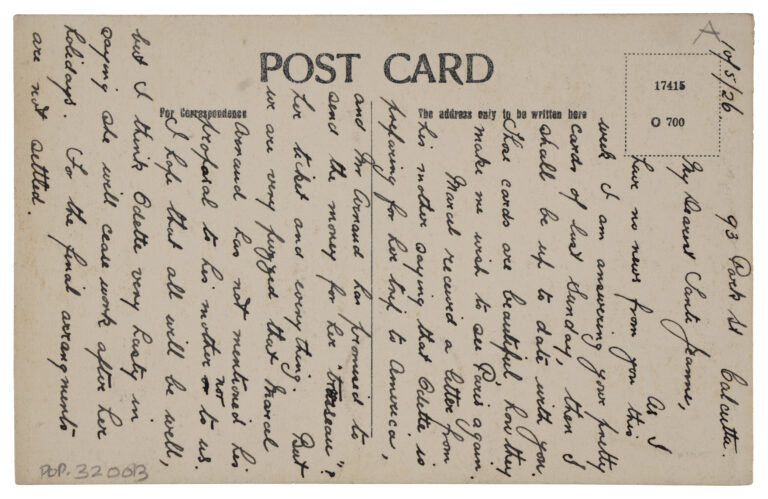 POST CARD
For Correspondence
The address only to be written here
17415
O 700
10/5/26. 93 Park St Calcutta.
My dearest Tante Jeanne,
As I
have no news from you this
week I am answering your pretty
cards of last Sunday, then I
shall be up to date with you.
Those cards are beautiful how they
make me wish to see Paris again.
Marcel received a letter from
his mother saying that Odette is
preparing for her trip to America,
and Mr Arnaud has promised to
send the money for her "trousseau"?
her ticket and everything. But
we are very puzzled that Marcel
Arnaud has not mentioned his
proposal to his mother nor to us.
I hope that all will be well,
but I think Odette very hasty in
saying she will cease work after her
holidays. For the final arrangments
are not settled.
POP. 320013